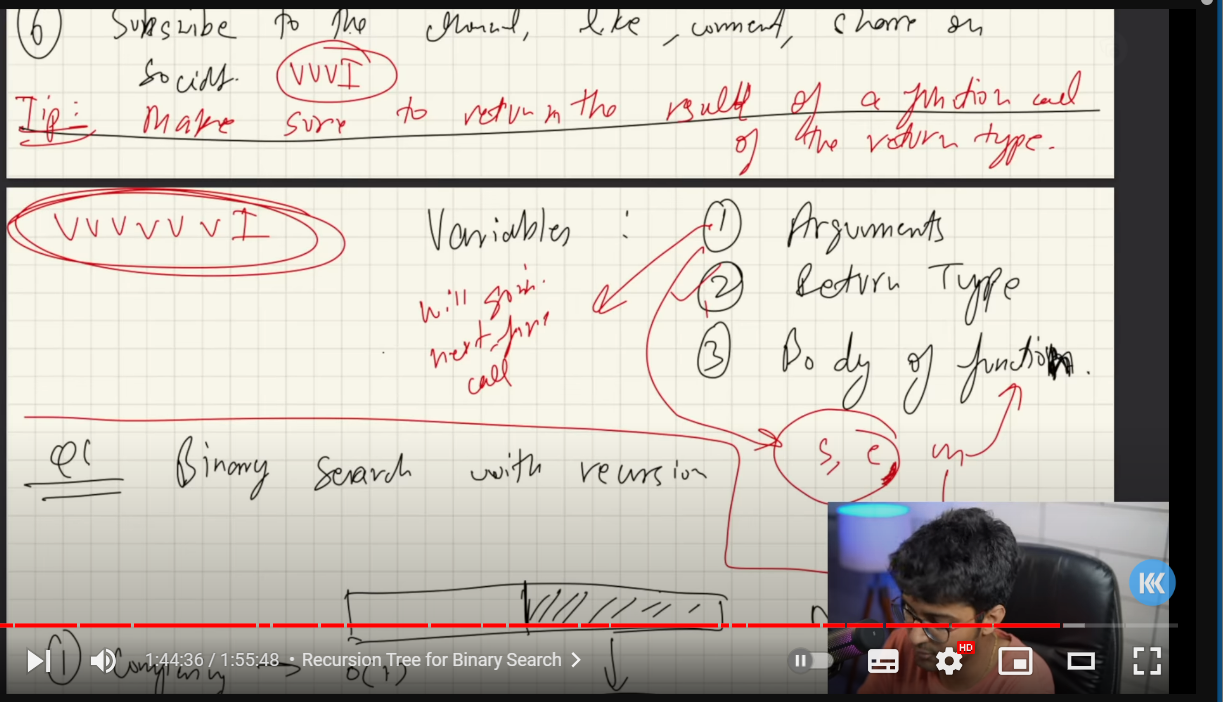 ⑥ Subscribe to the channel, like, comment, share on
socials. VVVI
Tip: Make sure to return the result of a function call
of the return type.
VVVVVVI Variables : ① Arguments
② Return Type
will go in
next func
call
③ Body of function.
s, e m
Q1 Binary Search with recursion
① Comparing → O(1)
1:44:36 / 1:55:48 • Recursion Tree for Binary Search >
HD